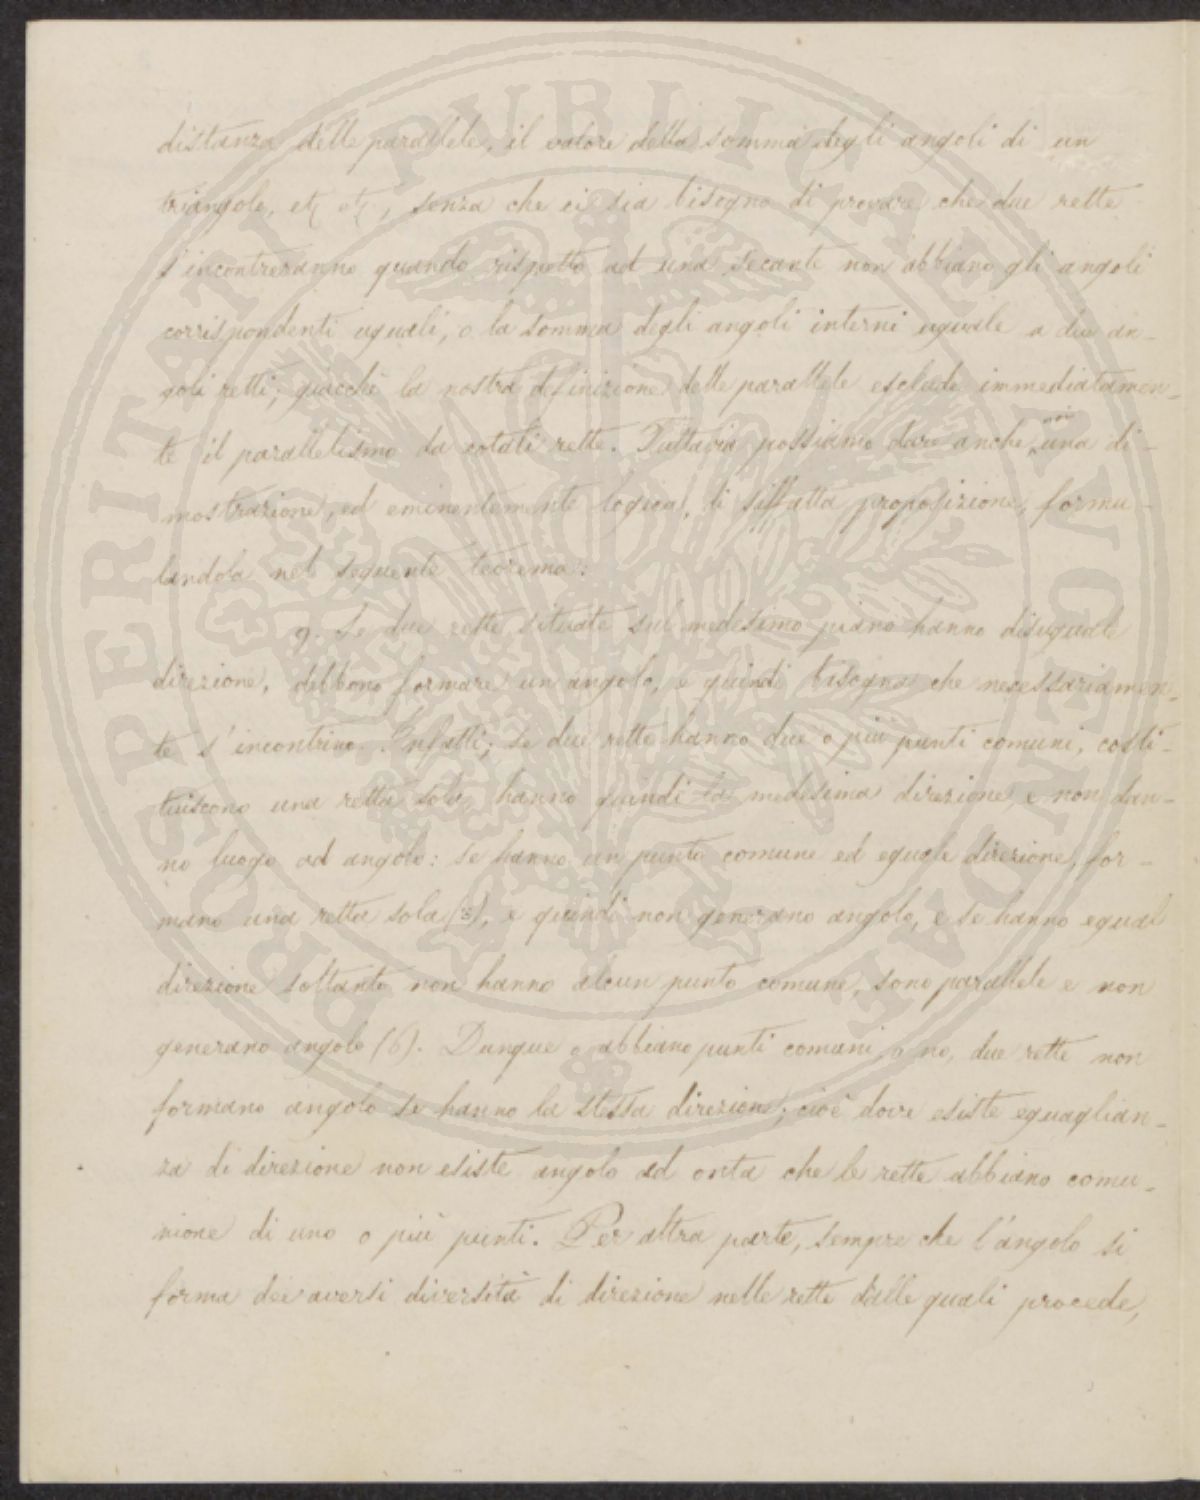 distanza delle parallele, il valore della somma degli angoli di un
triangolo, etc etc, senza che ci sia bisogno di provare che due rette
s'incontreranno quando rispetto ad una secante non abbiano gli angoli
corrispondenti uguali, o la somma degli angoli interni uguale a due an-
goli retti; giacchè la nostra definizione delle parallele esclude immediatamen-
te il parallelismo da cotali rette. Tuttavia possiamo dare anche una di-
mostrazione, ed eminentemente logica, di siffatta proposizione, formu-
landola nel seguente teorema:
9. Se due rette situate sul medesimo piano hanno disuguale
direzione, debbono formare un angolo, e quindi bisogna che necessariamen-
te s'incontrino. Infatti; se due rette hanno due o più punti comuni, costi-
tuiscono una retta sola, hanno quindi la medesima direzione, e non dan-
no luogo ad angolo: se hanno un punto comune ed eguale direzione, for-
mano una retta sola (3), e quindi non generano angolo, e se hanno egual
direzione soltanto non hanno alcun punto comune, sono parallele e non
generano angolo (6). Dunque o abbiano punti comuni, o no, due rette non
formano angolo se hanno la stessa direzione; cioè dove esiste eguaglian-
za di direzione non esiste angolo ad onta che le rette abbiano comu-
nione di uno o più punti. Per altra parte, sempre che l'angolo si
forma dee aversi diversità di direzione nelle rette dalle quali procede,
PROSPERITATI PUBLICAE AUGENDAE